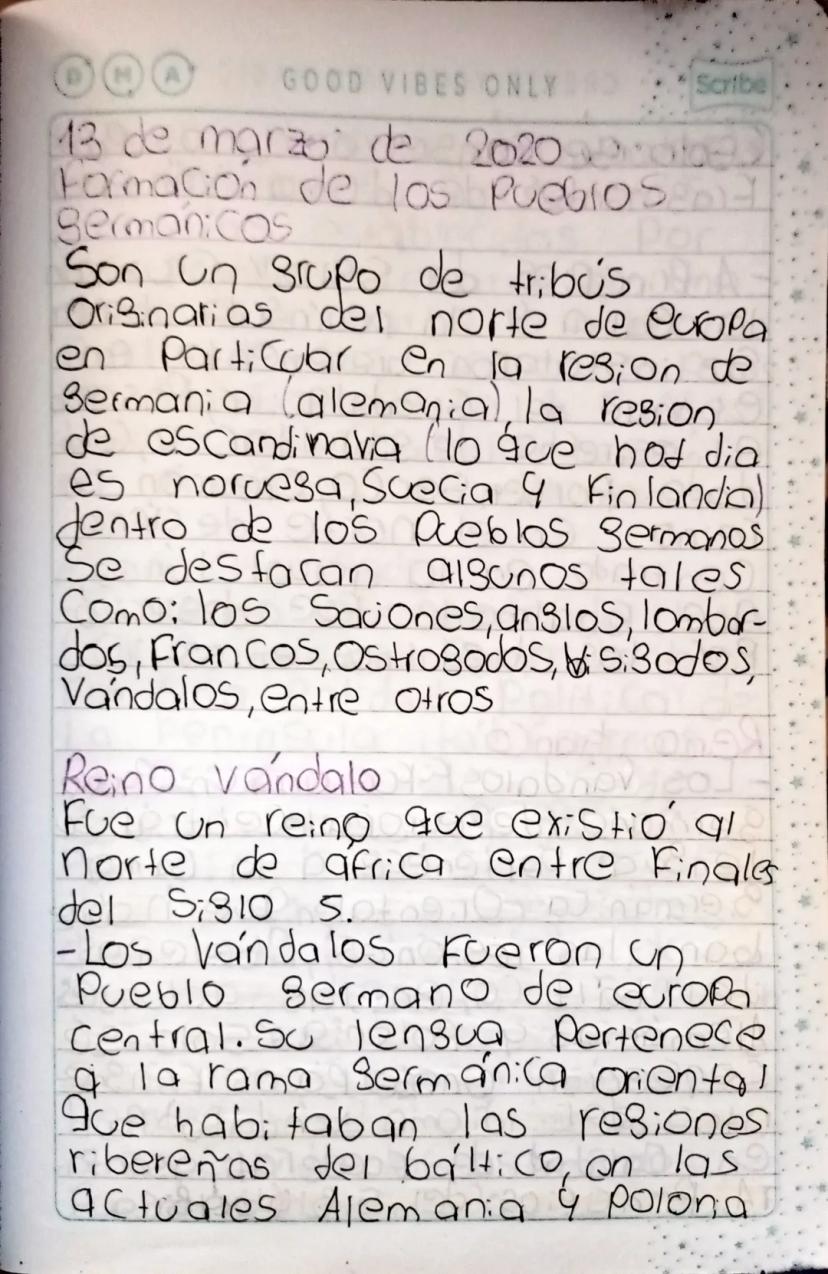 D M A GOOD VIBES ONLY Scribe
13 de marzo de 2020
Formación de los Pueblos
germánicos
Son un grupo de tribús
originarias del norte de europa
en Particular en la region de
germania (alemania), la region
de escandinavia (lo que hoy dia
es noruega, Suecia y Finlandia)
dentro de los Pueblos germanos
Se destacan algunos tales
Como: los Sajones, anglos, lombar-
dos, Francos, Ostrogodos, Visigodos,
Vándalos, entre otros
Reino vándalo
Fue un reino que existió al
norte de áfrica entre Finales
del Siglo 5.
-Los Vándalos Fueron un
Pueblo germano de europa
central. Su lengua Pertenece
a la rama germánica oriental
que habitaban las regiones
ribereñas del báltico, en las
actuales Alemania y Polonia